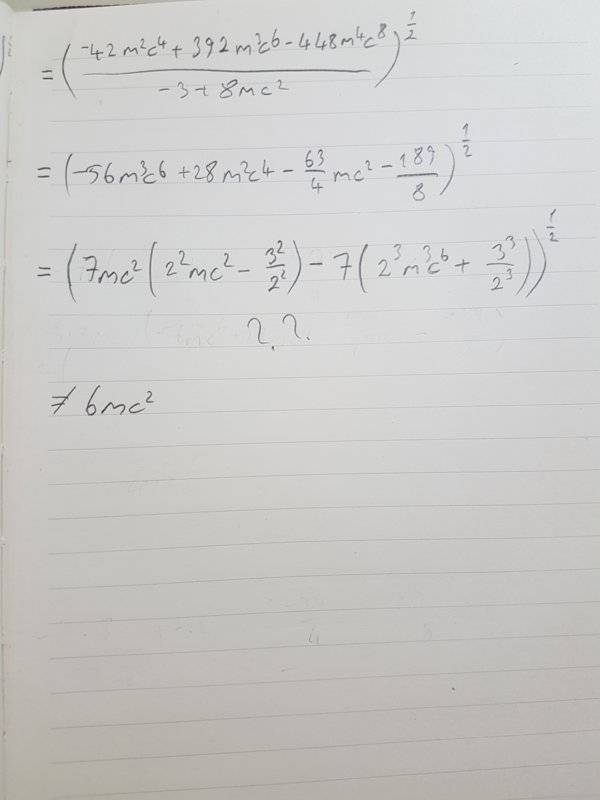 = ((-42m²c⁴ + 392m³c⁶ - 448m⁴c⁸)/(-3 + 8mc²))^(1/2)
= (-56m³c⁶ + 28m²c⁴ - 63/4 mc² - 189/8)^(1/2)
= (7mc²(2²mc² - 3²/2²) - 7(2³m³c⁶ + 3³/2³))^(1/2)
?.?.
≠ 6mc²